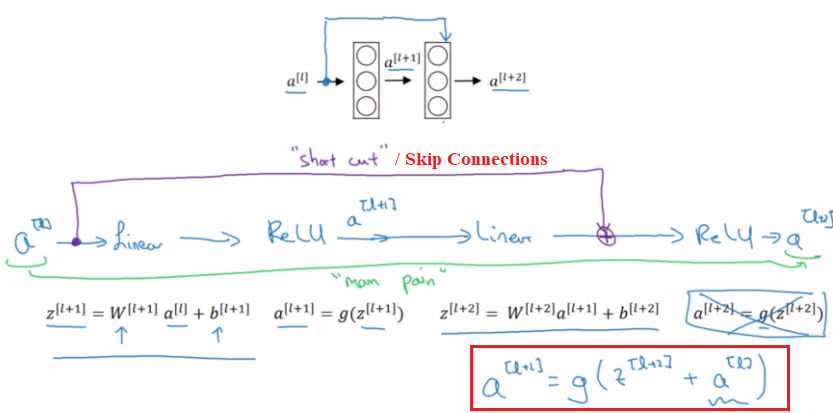 a[l] a[l+1] a[l+2]
"short cut" / Skip Connections
a[l] Linear ReLU a[l+1] Linear ReLU a[l+2]
"main pain"
z[l+1] = W[l+1] a[l] + b[l+1] a[l+1] = g(z[l+1]) z[l+2] = W[l+2]a[l+1] + b[l+2] a[l+2] = g(z[l+2])
a[l+2] = g(z[l+2] + a[l])